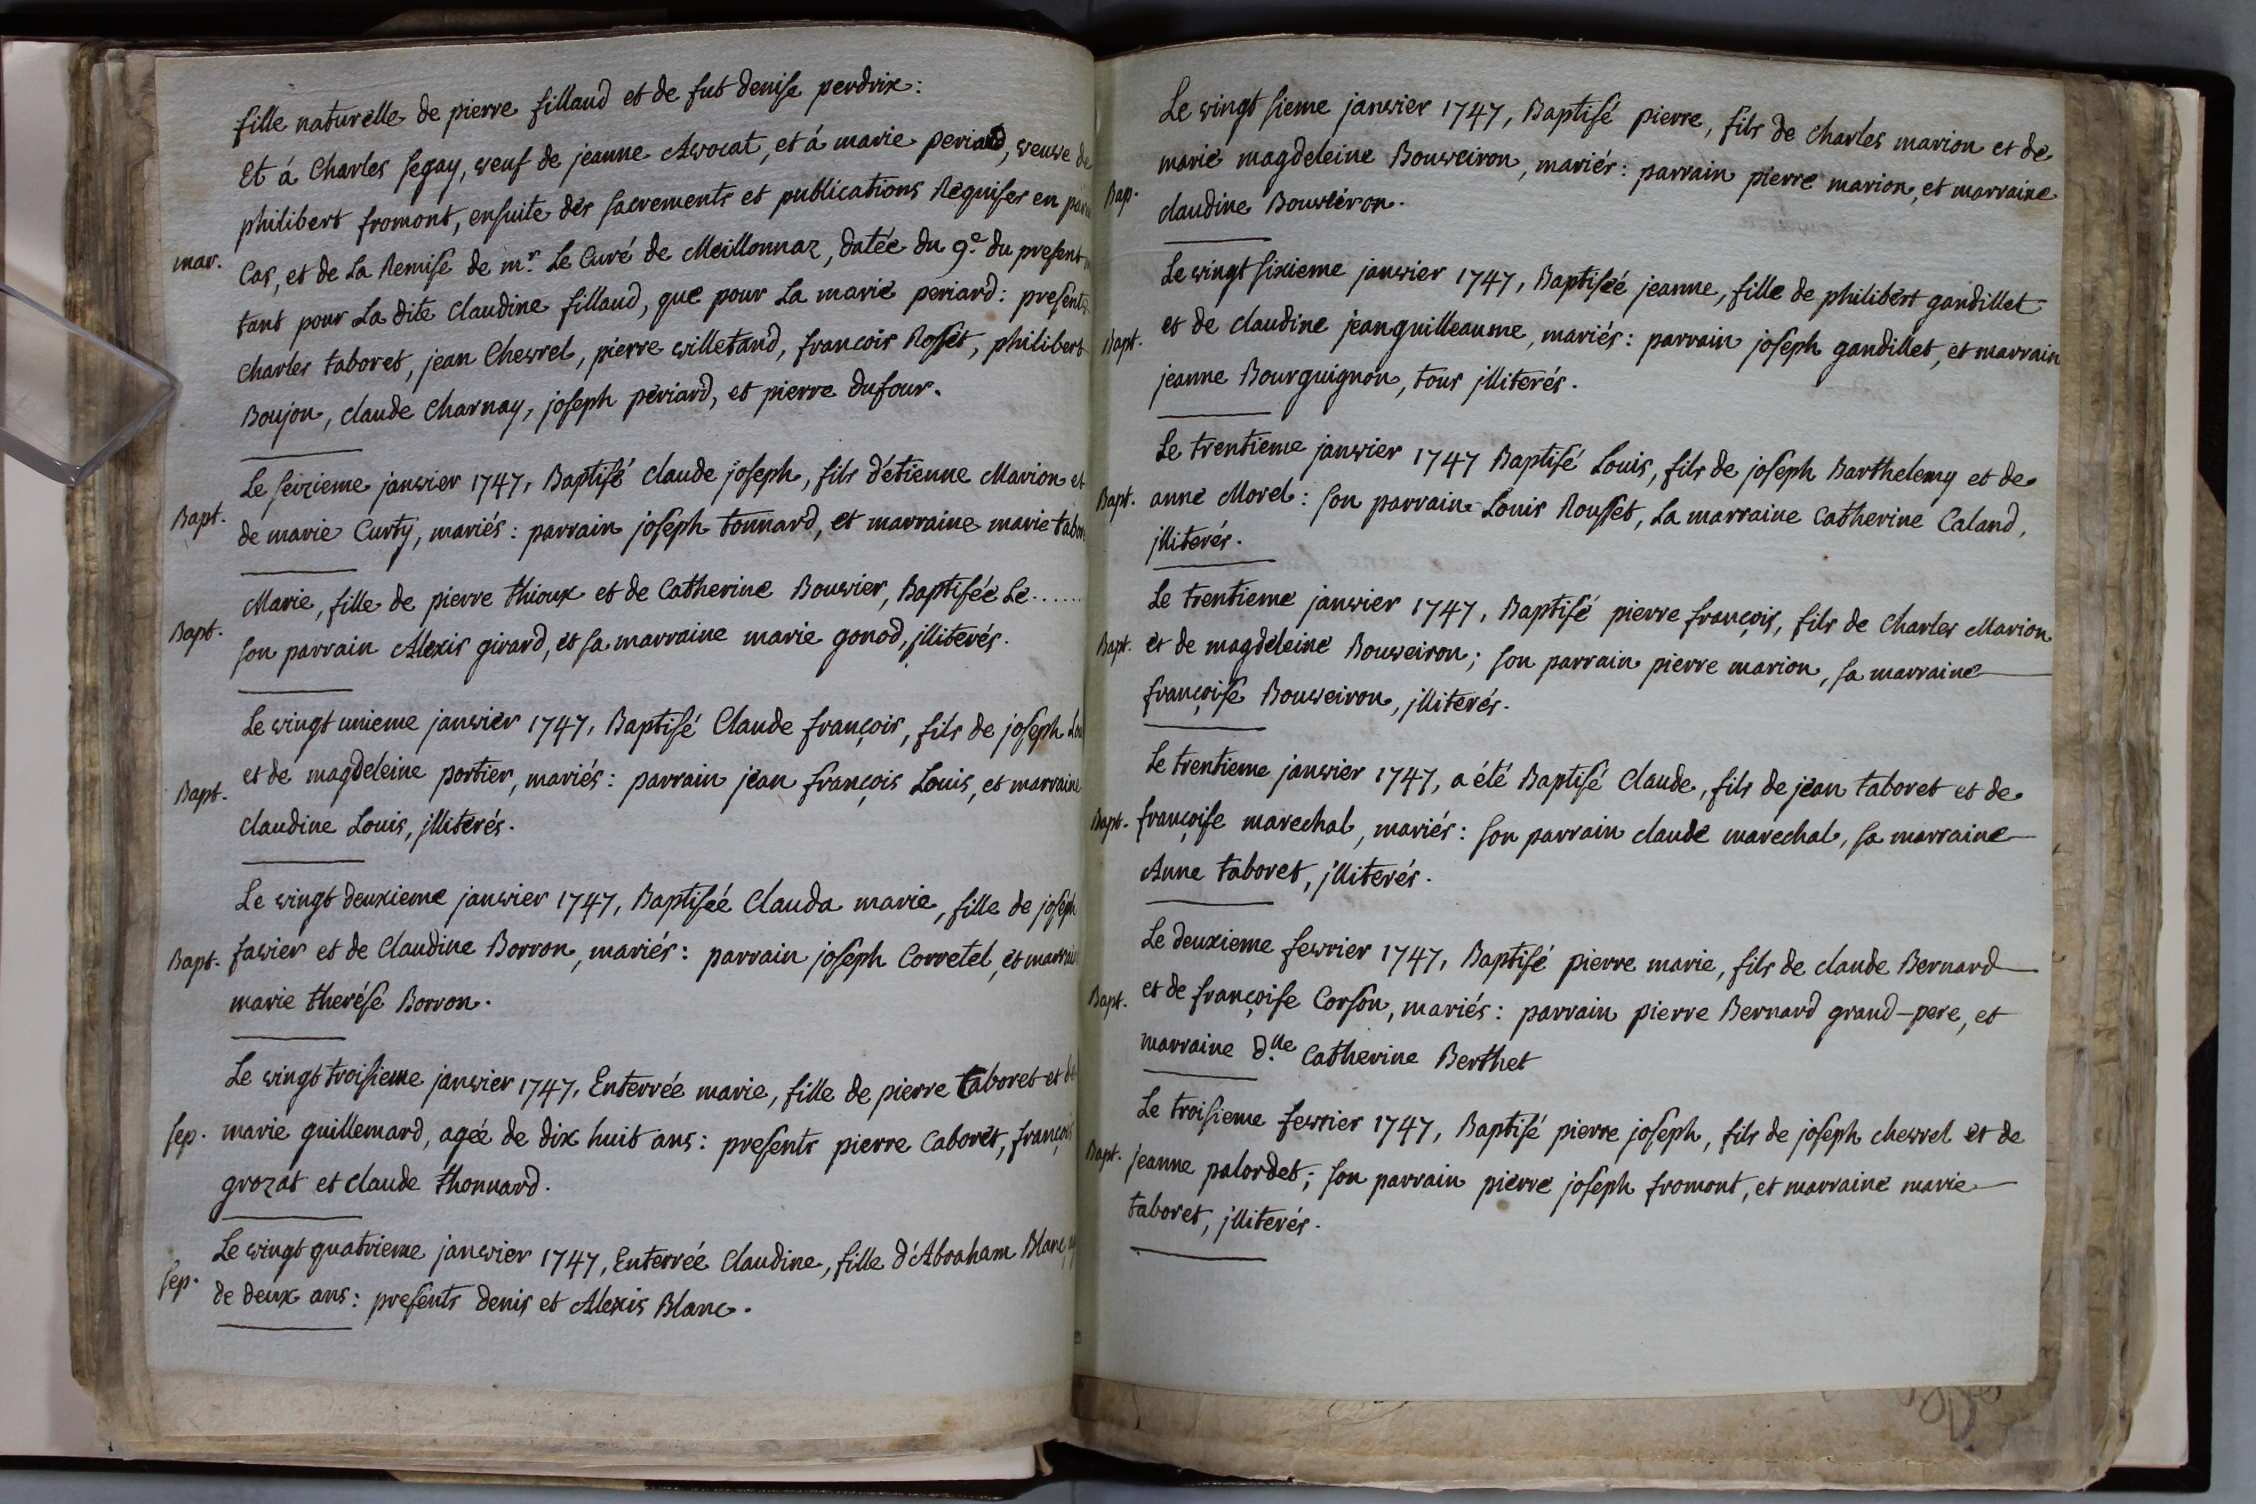 fille naturelle de pierre fillaud et de fut denise perdrix:
Et á Charles segay, veuf de jeanne Avocat, et á marie periard, veuve de
philibert fromont, ensuite des sacrements et publications Requises en
mar.
Cas, et de La Remise de mr. Le Curé de Meillonnaz, datée du 9e. du present
tant pour La dite claudine fillaud, que pour La marie periard: presents
charles taboret, jean Chevrel, pierre villetand, francois Rosset, philibert
Boujon, claude Charnay, joseph périard, et pierre dufour.
Le seizieme janvier 1747, Baptisé claude joseph, fils d'étienne Marion et
Bapt.
de marie Curty, mariés: parrain joseph tonnard, et marraine marie
Marie, fille de pierre thioux et de Catherine Bouvier, Baptisée Le......
Bapt.
son parrain Alexis girard, et sa marraine marie gonod, jlliterés.
Le vingt unieme janvier 1747, Baptisé Claude françois, fils de joseph
Bapt.
et de magdeleine portier, mariés: parrain jean françois Louis, et marraine
claudine Louis, jlliterés.
Le vingt deuxieme janvier 1747, Baptisée Clauda marie, fille de joseph
Bapt.
favier et de Claudine Borron, mariés: parrain joseph Corretel, et
marie therése Borron.
Le vingt troisieme janvier 1747, Enterrée marie, fille de pierre taboret et de
sep.
marie guillemard, agée de dix huit ans: presents pierre Caboret, françois
grozat et claude thonnard.
Le vingt quatrieme janvier 1747, Enterrée Claudine, fille d'Abraham Blanc,
sep.
de deux ans: presents denis et Alexis Blanc.
Le vingt sieme janvier 1747, Baptisé pierre, fils de charles marion et de
marie magdeleine Bouveiron, mariés: parrain pierre marion, et marraine
Bap.
claudine Bouveiron.
Le vingt sixieme janvier 1747, Baptisée jeanne, fille de philibert gandillet
Bapt.
et de claudine jeanguilleaume, mariés: parrain joseph gandillet, et marrain
jeanne Bourguignon, tous jlliterés.
Le trentieme janvier 1747 Baptisé Louis, fils de joseph Barthelemy et de
Bapt.
anne Morel: son parrain Louis Rousset, La marraine Catherine Caland,
jlliterés.
Le trentieme janvier 1747, Baptisé pierre françois, fils de Charles Marion
Bapt.
et de magdeleine Bouveiron; son parrain pierre marion, sa marraine
françoise Bouveiron, jlliterés.
Le trentieme janvier 1747, a été Baptisé Claude, fils de jean taboret et de
Bapt.
françoise marechal, mariés: son parrain claude marechal, sa marraine
Anne taboret, jlliterés.
Le deuxieme fevrier 1747, Baptisé pierre marie, fils de claude Bernard
Bapt.
et de françoise Corson, mariés: parrain pierre Bernard grand-pere, et
marraine d.lle Catherine Berthet
Le troisieme fevrier 1747, Baptisé pierre joseph, fils de joseph chevrel et de
Bapt.
jeanne palordet; son parrain pierre joseph fromont, et marraine marie
taboret, jlliterés.